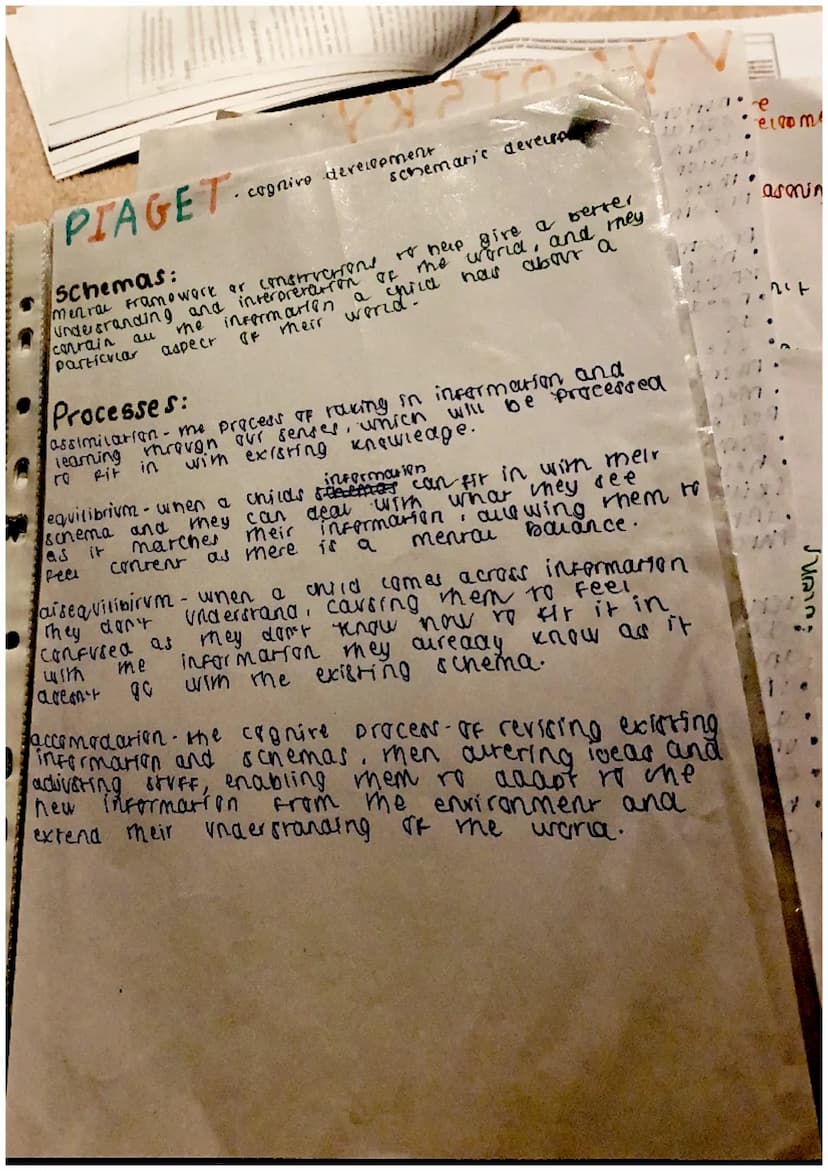 VYGOTSKY
PIAGET - cognive development
schematic develop
schemas:
mental framework or constructions to help give a better
understanding and interpretation of the world, and they
contain all the information a child has about a
particular aspect of their world.
Processes:
assimilation - the process of taking in information and
learning through our senses, which will be processed
to fit in with existing knowledge.
equilibrium - when a childs schemas information can fit in with their
schema and they can deal with what they see
as it matches their information, allowing them to
feel content as there is a mental balance.
disequilibirum - when a child comes across information
they don't understand, causing them to feel
confused as they don't know how to fit it in
with the information they already know as it
doesn't go with the existing schema.
accomodation - the cognive process - of revising existing
information and schemas, then altering ideas and
adjusting stuff, enabling them to adapt to the
new information from the environment and
extend their understanding of the world.